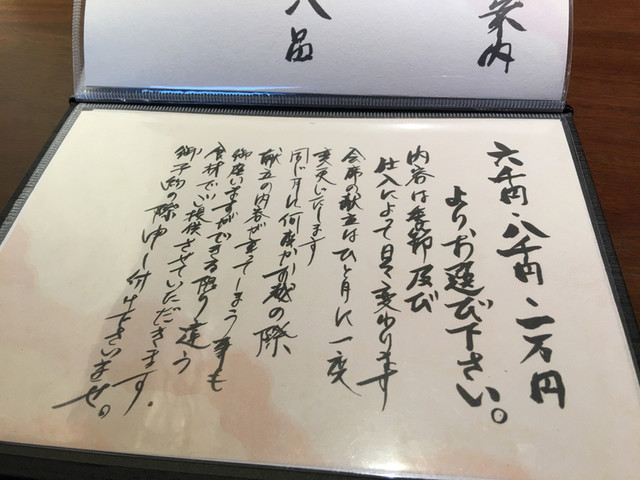 案内
八品
六千円・八千円・一万円
よりお選び下さい。
内容は季節及び
仕入によって日々変わります
会席の献立はひと月に一度
変更いたします
同じ月に何度かお越の際
献立の内容が重ってしまう事も
御座いますができる限り違う
食材でご提供させていただきます。
御予約の際申し付け下さいませ。